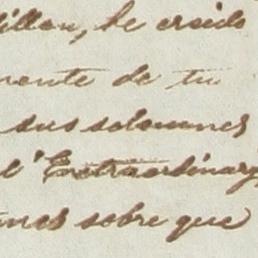 dillon, he creido
mente de tu
sus solemnes
l'Extraordinary
unes sobre que